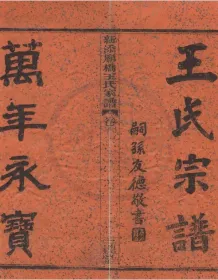 王氏宗譜
嗣孫友德敬書
王氏宗譜 卷
萬年永寶